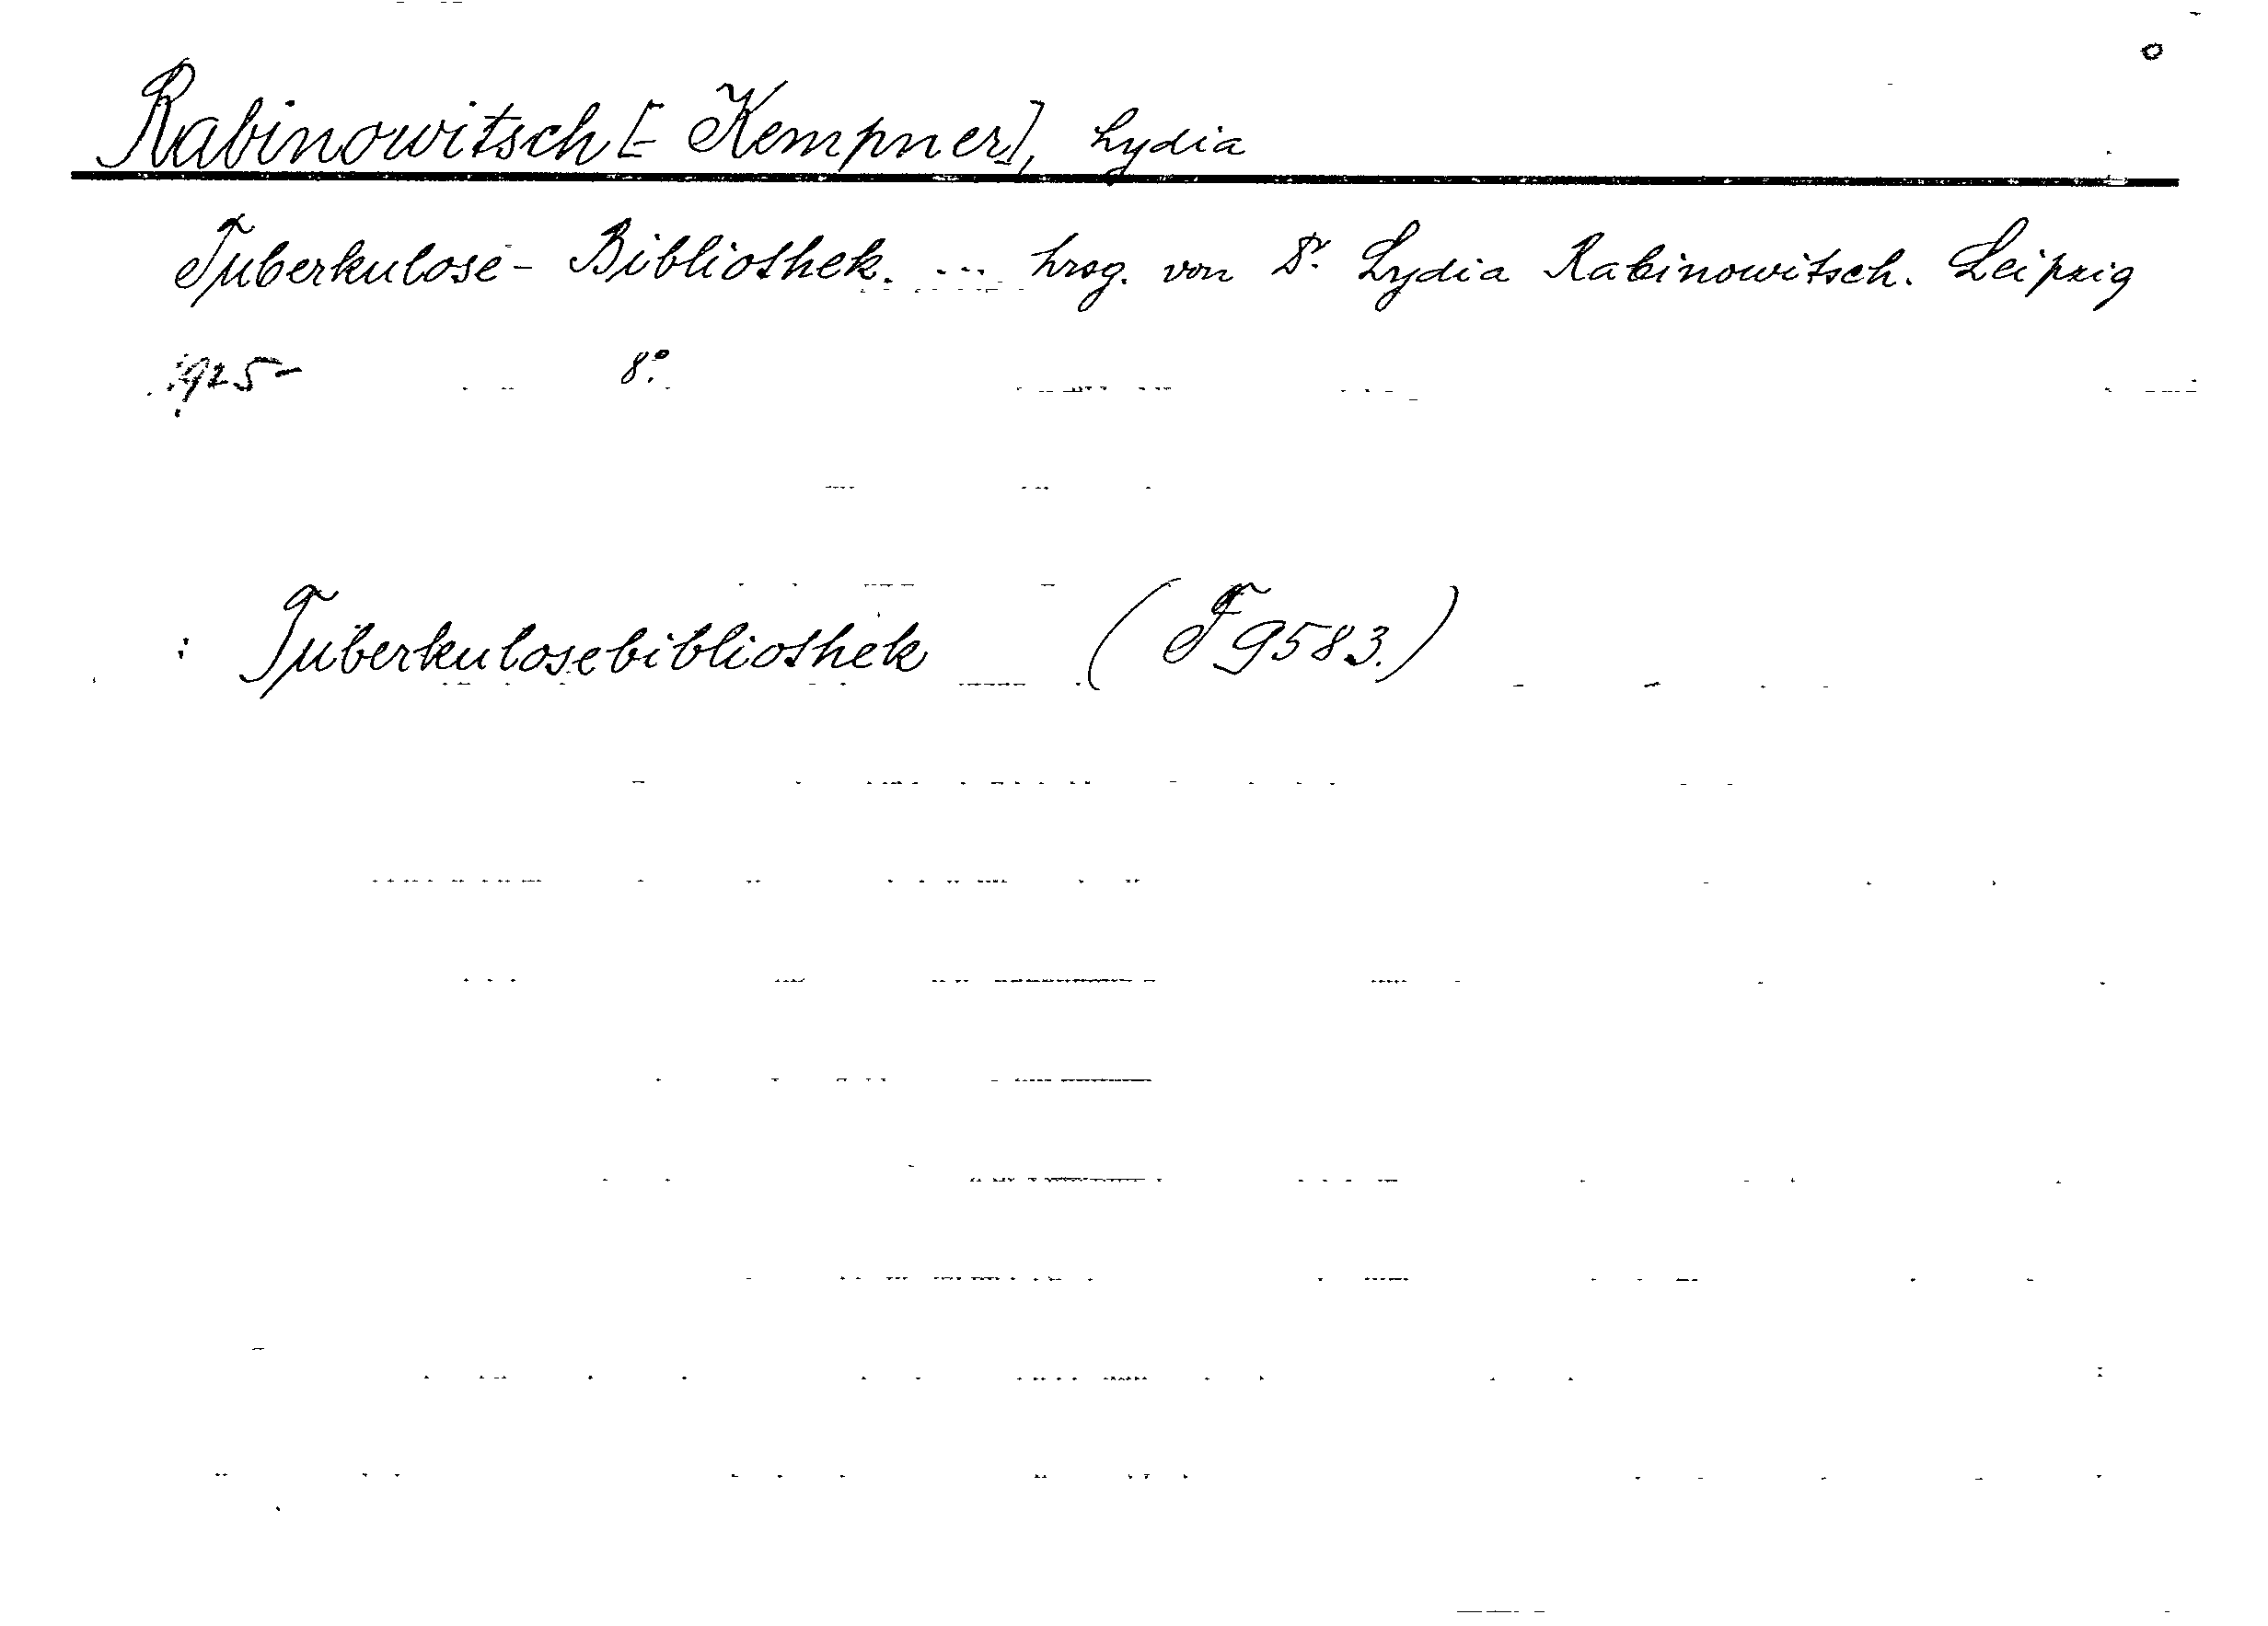 Rabinowitsch[-Kempner], Lydia
Tuberkulose-Bibliothek. ... hrsg. von Dr. Lydia Rabinowitsch. Leipzig
1925- 8°.
: Tuberkulosebibliothek (F 9583.)